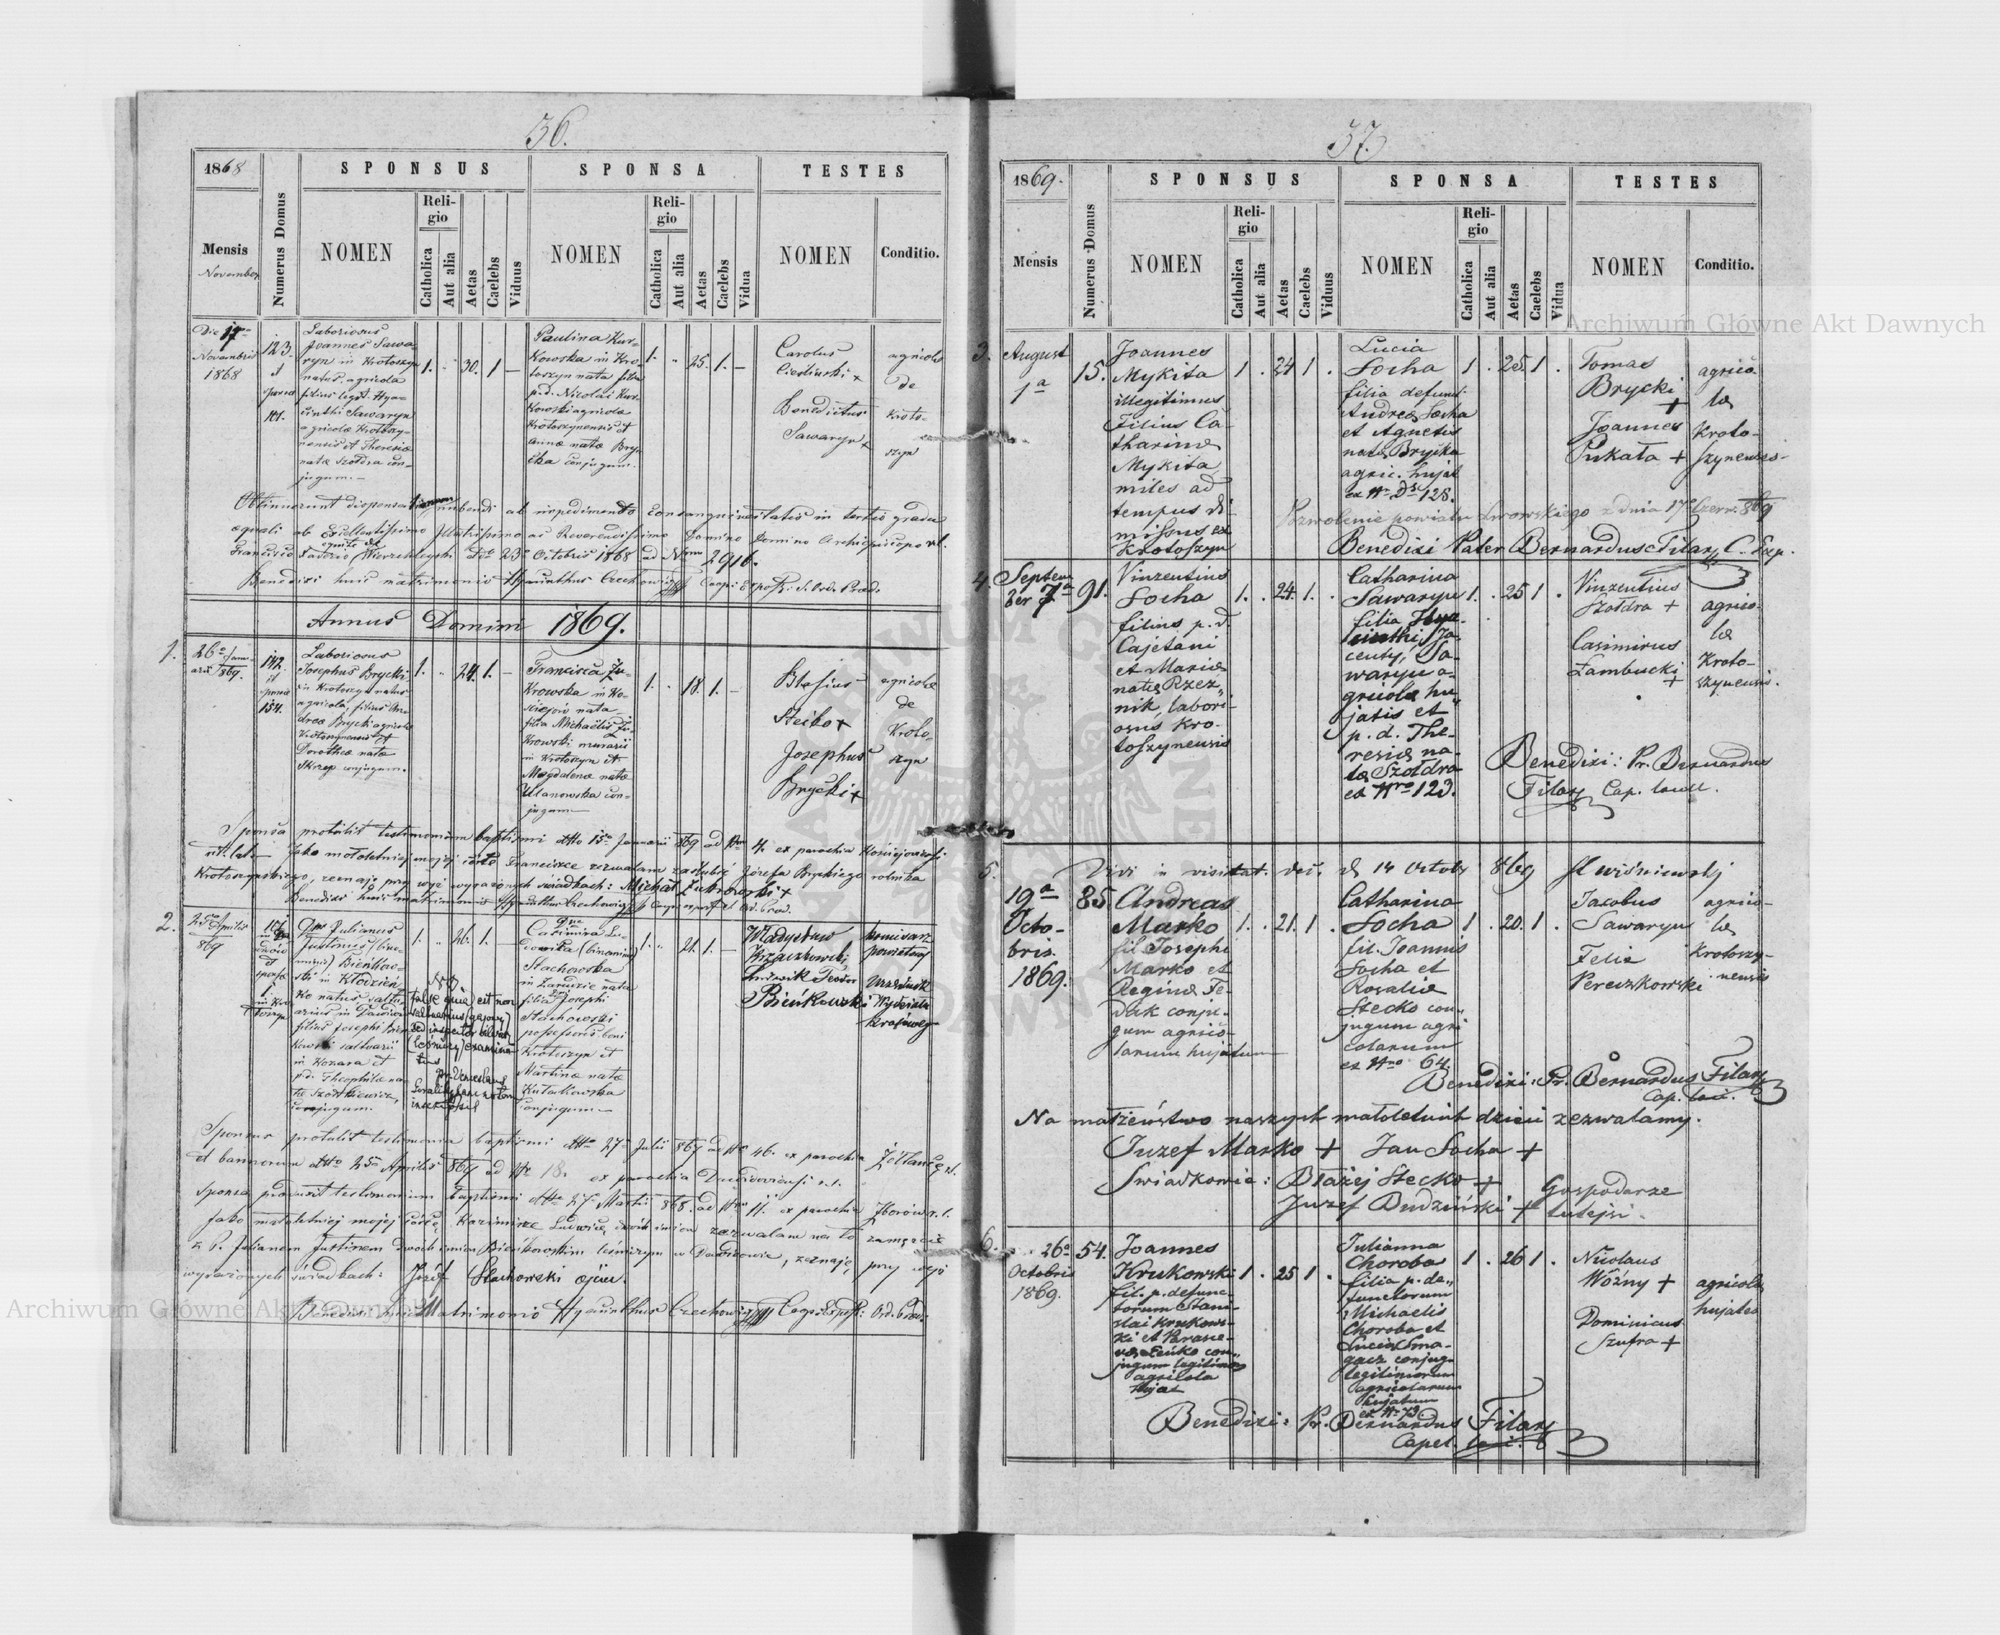 36.
1868
SPONSUS
SPONSA
TESTES
Mensis
November
Numerus Domus
NOMEN
Religio
Catholica
Aut alia
Aetas
Caelebs
Viduus
NOMEN
Religio
Catholica
Aut alia
Aetas
Caelebs
Vidua
NOMEN
Conditio.
Die 17
Novembris
1868
123.
et
sponsa
Laboriosus
Joannes Sawa-
ryn in Krotoszyn
natus, agricola
filius legit. Hya-
cinthi Sawaryn
agricolae Krotoszy-
nensis et Theresiae
natae Szołdra con-
jugum.
1. 30. 1 —
Paulina Kur-
kowska in Kro-
toszyn nata filia
p.d. Nicolai Kur-
kowski agricola
Krotoszynensis et
Annae natae Bryc-
ka conjugum.
1. 25. 1. —
Carolus
Cieśliński +
Benedictus
Sawaryn +
agricolae
de
Kroto-
szyn
Obtinuerunt dispensationem nubendi ab impedimento consanguinitatis in tertio gradu
aequali ab Excellentissimo Illustrissimo ac Reverendissimo Domino Domino Archiepiscopo r.l.
Francisco Xaverio equite de Wierzchleyski dto 23 Octobris 1868 ad Nrum 2916.
Benedixi huic matrimonio Hyacinthus Czechowicz Coop. Expos. S. Ord. Praed.
Annus Domini 1869.
1.
26a Janu-
arii 1869.
142.
et
sponsa
154.
Laboriosus
Josephus Brycki
in Krotoszyn natus
agricola, filius An-
dreae Brycki agricolae
Krotoszynensis et
Dorothea nata
Skrzep conjugum.
1. 24. 1. —
Francisca Żu-
krowska in Ko-
ściejów nata
filia Michaëlis Żu-
krowski murarii
in Krotoszyn et
Magdalenae natae
Ulanowska con-
jugum
1. 18. 1. —
Blasius
Steiko +
Josephus
Brycki +
agricolae
de
Kroto-
szyn
Sponsa protulit testimonium baptismi dtto 15a Januarii 869 ad Nrum 4. ex parochia Kościejoviensi
rit. lat. — Jako małoletniej mojej córce Franciszce zezwalam zaślubić Józefa Bryckiego rolnika
Krotoszyńskiego, zeznaję przy wyż wyrażonych świadkach: Michał Żukrowski +
Benedixi huic matrimonio Hyacinthus Czechowicz Coop. expos. Ord. Praed.
2.
25a Aprilis
869
Dns Julianus
Justinus (bino-
minus) Bieńkow-
ski in Kłodzien-
ko natus saltu-
arius in Dawidow
filius Josephi Bień-
kowski saltuarii
in Kozara et
p.d. Theophilae na-
tae Szostkiewicz
conjugum.
1. 26. 1. —
NB.
false quia est non
saltuarius (gajowy)
sed inspector silvae
(leśniczy) examina-
tus
Casimira Lu-
dovika (binomina)
Stachowska
in Zarudzie nata
filia Dni Josephi
Stachowski
possessoris boni
Krotoszyn et
Martinae natae
Kułakowska
conjugum
1. 21. 1. —
Władysław
Kraczkowski
Ludwik Teodor
Bieńkowski
komisarz
powiatowy
Urzędnik
Wydziału
krajowego
Sponsus protulit testimonia baptismi dtto 27a Julii 867 ad Nr 46. ex parochia Żółtańce r.l.
et bannorum dtto 25a Aprilis 869 ad Nr 18. ex parochia Dawidoviensi r.l.
Sponsa produxit testimonium baptismi dtto 27a Martii 868. ad Nrum 11. ex parochia Zborów r.l.
Jako małoletniej mojej córce, Kazimirze Ludwice, dwóch imion zezwalam na to zamęście
z P. Julianem Justinem dwoch imion Bieńkowskim leśniczym w Dawidowie, zeznaję, przy wyż
wyrażonych świadkach: Józef Stachowski ojciec.
Benedixi huic Matrimonio Hyacinthus Czechowicz Coop. Expos: Ord. Praed.
37.
1869.
SPONSUS
SPONSA
TESTES
Mensis
Numerus Domus
NOMEN
Religio
Catholica
Aut alia
Aetas
Caelebs
Viduus
NOMEN
Religio
Catholica
Aut alia
Aetas
Caelebs
Vidua
NOMEN
Conditio.
3.
August
1a
15.
Joannes
Mykita
illegitimus
Filius Ca-
tharinae
Mykita
miles ad
tempus di-
missus ex
Krotoszyn
1 . 24 1 .
Lucia
Socha
filia defuncti
Andreae Socha
et Agnetis
natae Brycka
agric. hujat
ex Nro Ds 128.
1 . 25. 1 .
Tomas
Brycki
+
Joannes
Pukata +
agrico-
lae
Kroto-
szynenses
Pozwolenie powiatu Lwowskiego z dnia 17 Czerw. 869
Benedixi Pater Bernardus Filarz C. Exp.
4.
Septem-
ber 7a
91.
Vinzentius
Socha
filius p.d.
Cajetani
et Mariae
natae Rzez-
nik, labori-
osus Kro-
toszynensis
1. . 24. 1. .
Catharina
Sawaryn
filia Hya-
cinthi, (Ja-
centy,) Sa-
waryn a-
gricolae hu-
jatis et
p.d. The-
resiae na-
tae Szołdra
ex Nro 123.
1. . 25 1 .
Vinzentius
Szołdra +
Casimirus
Zambucki
+
agrico-
lae
Kroto-
szynensis.
Benedixi: Pr. Bernardus
Filarz Cap. locall.
5.
Vidi in visitat. dec. d 14 Octob 869 Wiśniewskj
19a
Octo-
bris
1869.
85.
Andreas
Marko
fil. Josephi
Marko et
Reginae Fe-
dak conju-
gum agrico-
larum hujatum
1. . 21. 1 .
Catharina
Socha
fil. Joannis
Socha et
Rosaliae
Stecko con-
jugum agri
colarum
ex Nro 64.
1 . 20. 1 .
Jacobus
Sawaryn
Felix
Pereszkowski
agrico-
lae
Krotoszy-
nensis
Benedixi: Pr. Bernardus Filarz
Cap. loc.
Na małżeństwo naszych małoletnich dzieci zezwalamy.
Juzef Marko + Jan Socha +
Swiadkowie: Błażej Stecko +
Juzef Budziński +
Gospodarze
tutejsi.
6.
26a
Octobris
1869.
54.
Joannes
Krukowski
fil. p. defunc-
torum Stani-
slai Krukow-
ski et Parasce-
vae Seńko con-
jugum legitimor
agricola
hujas
1 . 25 1 .
Julianna
Choroba
filia p. de-
functorum
Michaelis
Choroba et
Luciae Sma-
gacz conjug.
legitimorum
agricolarum
hujatum
ex Nr 73
1 . 26 1 .
Nicolaus
Woźny +
Dominicus
Szufra +
agricolae
hujates
Benedixi: Pr. Bernardus Filarz
Capel. loc.
Archiwum Główne Akt Dawnych
Archiwum Główne Akt Dawnych